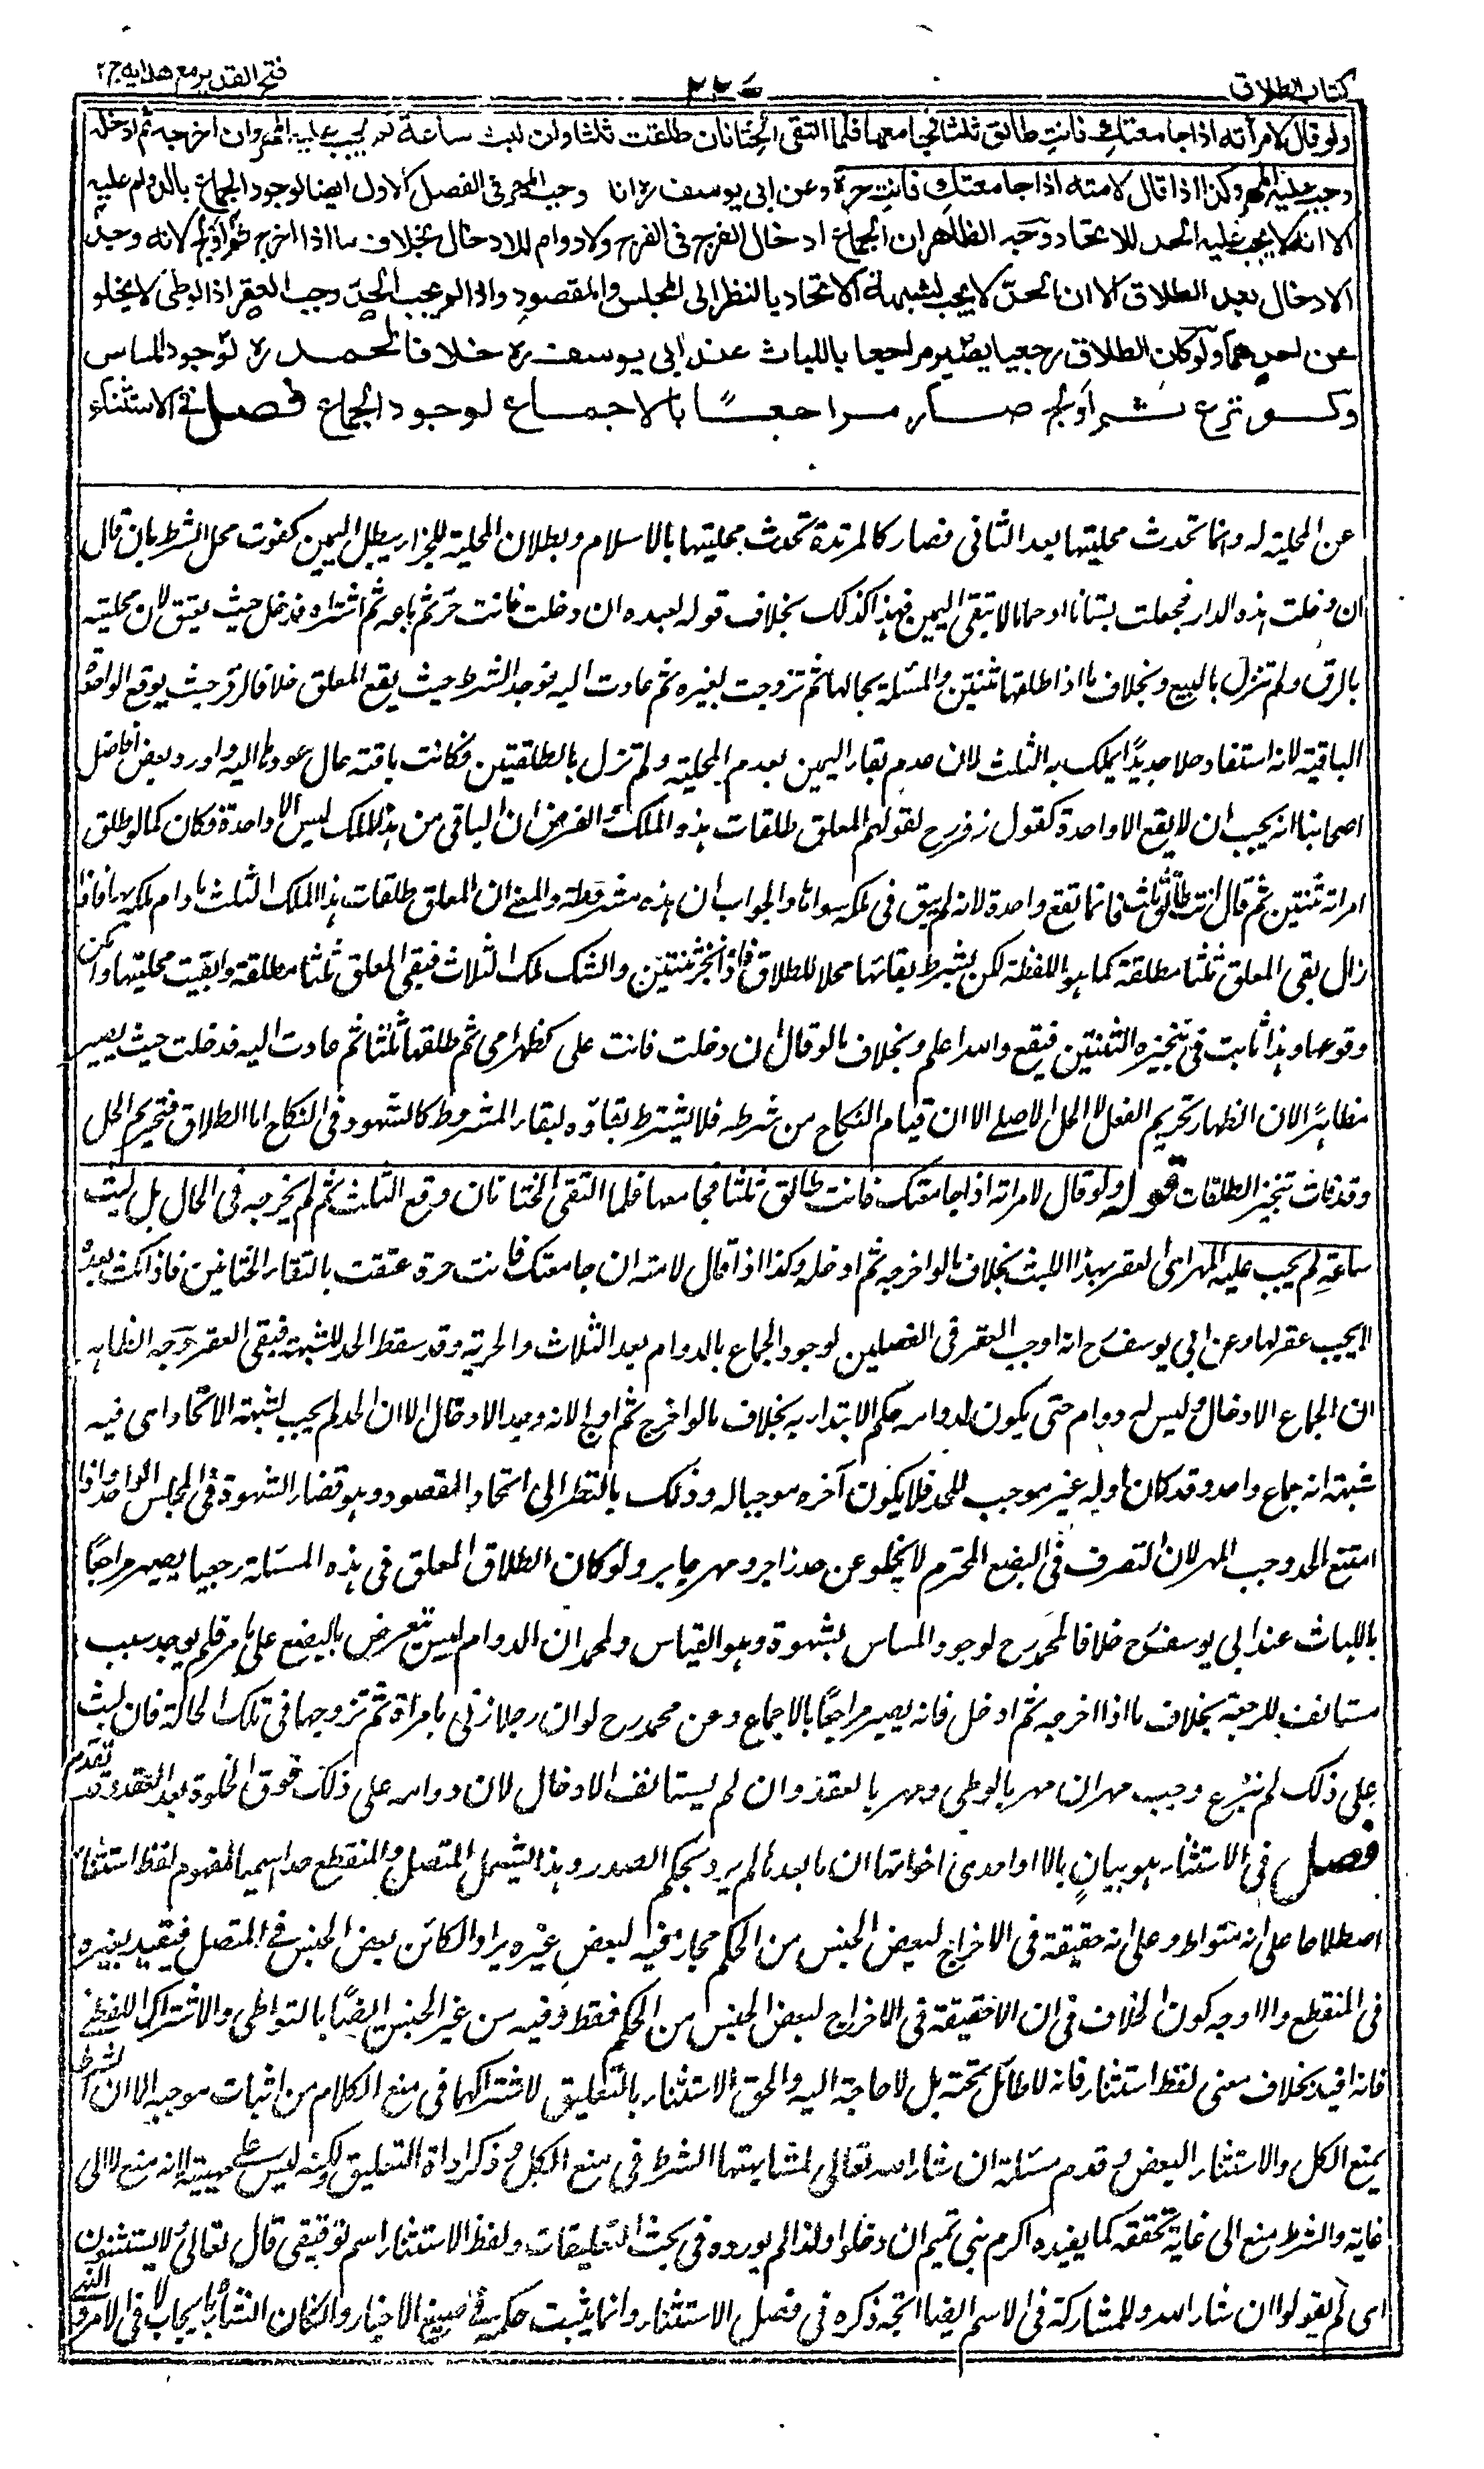 كتاب الطلاق
٢٢٤
فتح القدير مع هدايه ج٢
ولو قال لامرأته اذا جامعتك فانت طالق ثلثا فجامعها فلما التقى الختانان طلقت ثلثا وان لبث ساعة لم يجب عليه المهر وان اخرجه ثم ادخله
وجب عليه المهر وكذا اذا قال لامته اذا جامعتك فانت حرة وعن ابي يوسف ره انه وجب المهر فى الفصل الاول ايضا لوجود الجماع بالدوام عليه
الا انه لا يجب عليه الحد للاتحاد وجه الظاهر ان الجماع ادخال الفرج فى الفرج ولا دوام للادخال بخلاف ما اذا اخرج ثم اولج لانه وجد
الادخال بعد الطلاق الا ان الحد لا يجب لشبهة الاتحاد بالنظر الى المجلس والمقصود واذا لم يجب الحد وجب العقر اذ الوطى لا يخلو
عن احدهما ولو كان الطلاق رجعيا يصير مراجعا باللباث عند ابي يوسف ره خلافا لمحمد ره لوجود المساس
ولو نزع ثم اولج صار مراجعًا بالاجماع لوجود الجماع فصل فى الاستثناء
عن المحلية له وانما تحدث محليتها بعد الثانى فصار كالمرتدة تحدث محليتها بالاسلام وبطلان المحلية للجزاء يبطل اليمين كفوت محل الشرط بان قال
ان دخلت هذه الدار فجعلت بستانا او حماما لا تبقى اليمين فهذا كذلك بخلاف قوله لعبده ان دخلت فانت حر ثم باعه ثم اشتراه فدخل حيث يعتق لان محليته
بالرق ولم تزل بالبيع وبخلاف ما اذا طلقها ثنتين والمسئلة بحالها ثم تزوجت بغيره ثم عادت اليه فوجد الشرط حيث يقع المعلق خلافا لزفر حيث يوقع الواحدة
الباقية لانه استفاد حلا جديدًا يملك به الثلث لان عدم بقاء اليمين بعدم المحلية ولم تزل بالطلقتين فكانت باقية حال عودها اليه واورد بعض افاضل
اصحابنا انه يجب ان لا يقع الا واحدة كقول زفر رح لقولهم المعلق طلقات هذه الملك والفرض ان الباقى من هذا الملك ليس الا واحدة فكان كما لو طلق
امرأته ثنتين ثم قال انت طالق ثلثا فانما تقع واحدة لانه لم يبق فى ملكه سواها والجواب ان هذه مشروطة والمعنى ان المعلق طلقات هذا الملك الثلث ما دام ملكه لها فاذا
زال بقى المعلق ثلثا مطلقة كما هو اللفظة لكن بشرط بقائها محلا للطلاق فاذا نجز ثنتين والشك ملك الثلاث فبقى المعلق ثلثا مطلقة وابقيت محليتها وامكن
وقوعها وهذا ثابت فى تنجيزه الثنتين فيقع والله اعلم وبخلاف ما لو قال ان دخلت فانت على كظهر امى ثم طلقها ثلثا ثم عادت اليه فدخلت حيث يصير
مظاهرًا لان الظهار تحريم الفعل لا الحل الاصلى الا ان قيام النكاح من شرطه فلا يشترط بقاؤه لبقاء المشروط كالشهود فى النكاح اما الطلاق فتحريم الحل
وقد فات بتنجيز الطلقات قوله ولو قال لامرأته اذا جامعتك فانت طالق ثلثا فجامعها فلما التقى الختانان وقع الثلث ثم لم يخرجه فى الحال بل لبث
ساعة لم يجب عليه المهر اى العقر بهذا اللبث بخلاف ما لو اخرجه ثم ادخله وكذا اذا قال لامته ان جامعتك فانت حرة عتقت بالتقاء الختانين فاذا مكث بعده
لا يجب عقر لها وعن ابي يوسف رح انه اوجب العقر فى الفصلين لوجود الجماع بالدوام بعد الثلاث والحرية وقد سقط الحد للشبهة فبقى العقر وجه الظاهر
ان الجماع الادخال وليس له دوام حتى يكون لدوامه حكم الابتداء به بخلاف ما لو اخرج ثم اولج لانه وجد الادخال الا ان الحد لم يجب لشبهة الاتحاد اى فيه
شبهة انه جماع واحد وقد كان اوله غير موجب للحد فلا يكون آخره موجبا له وذلك بالنظر الى اتحاد المقصود وهو قضاء الشهوة فى المجلس الواحد واذا
امتنع الحد وجب المهر لان التصرف فى البضع المحترم لا يخلو عن حد زاجر او مهر جابر ولو كان الطلاق المعلق فى هذه المسئلة رجعيا يصير مراجعًا
باللباث عند ابي يوسف رح خلافا لمحمد رح لوجود المساس بشهوة وهو القياس ولمحمد ان الدوام ليس بتعرض بالبضع على ما مر فلم يوجد سبب
مستانف للرجعة بخلاف ما اذا اخرجه ثم ادخل فانه يصير مراجعًا بالاجماع وعن محمد رح لو ان رجلا زنى بامرأة ثم تزوجها فى تلك الحالة فان لبث
على ذلك لم ينزع وجب مهران مهر بالوطى ومهر بالعقد وان لم يستانف الادخال لان دوامه على ذلك فوق الخلوة بعد العقد وقد تقدم
فصل فى الاستثناء هو بيان بالا او احدى اخواتها ان ما بعدها لم يرد بحكم الصدر وهذا يشمل المتصل والمنقطع حدا سميا لمفهوم لفظ استثناء
اصطلاحا على انه متواط وعلى انه حقيقة فى الاخراج لبعض الجنس من الحكم مجاز فيه لبعض غيره يراد الكائن بعض الجنس فى المتصل فيقيد بغيره
فى المنقطع والاوجه كون الخلاف فى ان الا حقيقة فى الاخراج لبعض الجنس من الحكم فقط وفيه من غير الجنس ايضًا بالتواطى والاشتراك اللفظى
فانه افيد بخلاف معنى لفظ استثناء فانه لا طائل تحته بل لا حاجة اليه والحق الاستثناء بالتعليق لاشتراكهما فى منع الكلام من اثبات موجبه الا ان الشرط
يمنع الكل والاستثناء البعض وقدم مسئلة ان شاء الله تعالى لمشابهتها الشرط فى منع الكل وذكر اداة التعليق ولكنه ليس على مهيته لانه منع لا الى
غاية والشرط منع الى غاية تحققه كما يفيده اكرم بنى تميم ان دخلوا ولذا لم يورده فى بحث التعليقات ولفظ الاستثناء اسم توقيفى قال تعالى ولا يستثنون
اى لم يقولوا ان شاء الله وللمشاركة فى الاسم ايضا اتجه ذكره فى فصل الاستثناء وانما يثبت حكمه فى صيغ الاخبار وان كان انشاء ايجاب لا فى الامر والنهى